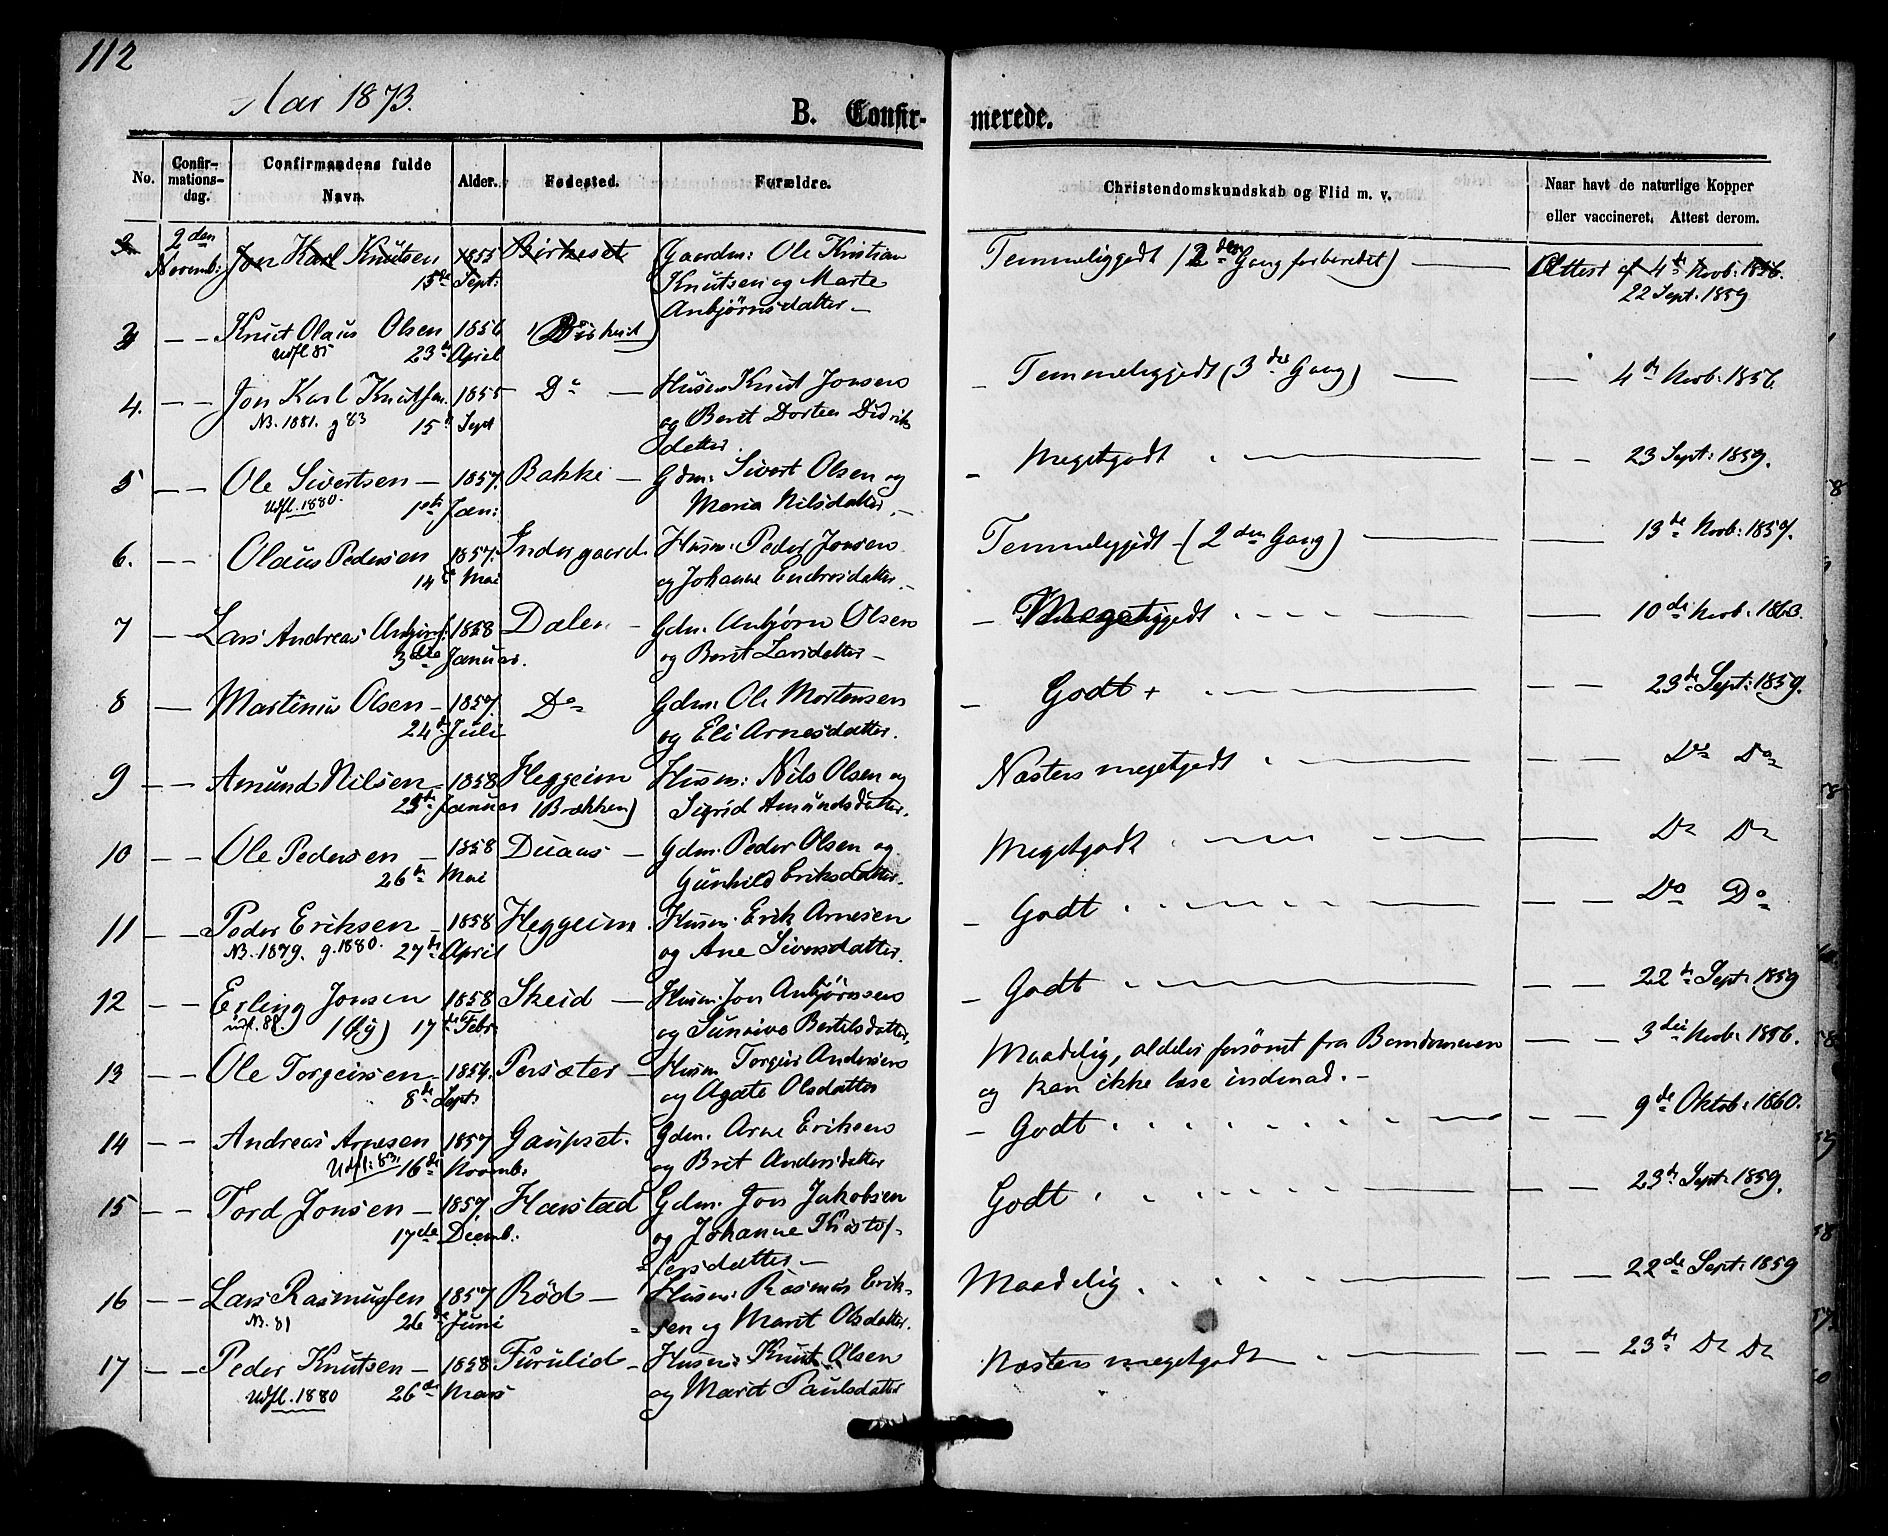 112
Aar 1873.
B. Confir- merede.
No. Confir-mations-dag. Confirmandens fulde Navn. Alder. Fødested. Forældre. Christendomskundskab og Flid m. v. Naar havt de naturlige Kopper eller vaccineret. Attest derom.
2den Novemb: Jon Karl Knutsen 1855 Birkeset Gaardm: Ole Kristian Temmeliggodt (2den Gang forberedet) Attest af 4de Novb: 1856.
15de Sept: Knutsen og Marte 22 Sept. 1859
Anbjørnsdatter
3 Knut Olaus Olsen 1856
Udfl 85 23de April
4. Jon Karl Knutsen 1855 Do Husm Knut Jonsen Temmeliggodt (3die Gang) 4de Novb: 1856.
N3. 1881. g 83 15de Sept og Berit Dortea Didriks
datter.
5 Ole Sivertsen 1857. Bakke Gdm: Sivert Olsen og Megetgodt 23 Sept: 1859.
Udfl. 1880. 1ste Jan: Maria Nilsdatter
6. Olaus Pedersen 1857. Indergaard Husm: Peder Jonsen Temmeliggodt (2den Gang) 13de Novb: 1857.
14de Mai og Johanne Endresdatter
7 Lars Andreas Anbjørns: 1858 Dalen Gdm. Anbjørn Olsen 10de Novb: 1863.
3die Januar. og Berit Larsdatter
8 Martinus Olsen 1857 Do Gdm: Ole Mortensen Godt + 23de Sept: 1859.
24de Juli og Eli Arnesdatter.
9 Amund Nilsen 1858 Heggeim Husm: Nils Olsen og Næsten megetgodt Do Do
23de Januar (Brækken) Sigrid Amundsdatter.
10 Ole Pedersen 1858 Duaas Gdm. Peder Olsen og Megetgodt Do Do
26de Mai Gunhild Eriksdatter.
11 Peder Eriksen 1858 Heggeim Husm. Erik Arnesen Godt Do Do
N3. 1879. g. 1880. 27de April og Ane Siversdatter.
12 Erling Jonsen 1858 Skeid Husm. Jon Anbjørnsen Godt 22de Sept. 1859
udf. 88. 17de Febr og Sunniva Bertelsdatter.
13 Ole Torgeirsen 1854. Persæter Husm Torgeir Andersen Maadelig, aldeles forsømt fra Barndommen 3die Novb: 1856.
8de Sept: og Agate Olsdatter og kan ikke læse indenad.
14 Andreas Arnesen 1857 Gaupset. Gdm. Arne Eriksen Godt 9de Oktob: 1860.
Udfl: 83. 16de Novemb: og Brit Andersdatter
15 Tord Jonsen 1857. Harstad Gdm. Jon Jakobsen Godt 23de Sept. 1859.
17de Decmb: og Johanne Kristof-
fersdatter
16 Lars Rasmussen 1857 Rød Husm: Rasmus Erik- Maadelig. 22de Sept. 1859
N3. 81 26de Juni sen og Marit Olsdatter.
17 Peder Knutsen 1858 Furulid Husm: Knut Olsen Næsten megetgodt 23de Do Do
Udfl. 1880 26de Mars og Marit Paulsdatter